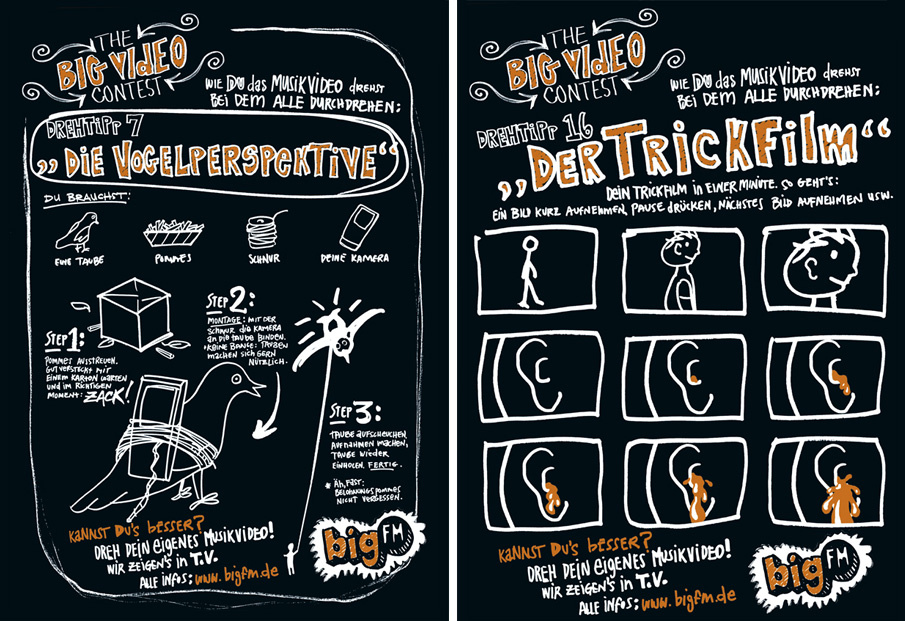 THE
BIG VIDEO
CONTEST
WIE DU das MUSIKVIDEO drehst
BEI DEM ALLE DURCHDREHEN:
DREHTIPP 7
„DIE VOGELPERSPEKTIVE“
DU BRAUCHST:
EINE TAUBE
POMMES
SCHNUR
DEINE KAMERA
STEP 1:
POMMES AUSSTREUEN.
GUT VERSTECKT MIT
EINEM KARTON WARTEN
UND IM RICHTIGEN
MOMENT: ZACK!
STEP 2:
MONTAGE: MIT DER
SCHNUR DIE KAMERA
AN DIE TAUBE BINDEN.
KEINE BANGE: TAUBEN
MACHEN SICH GERN
NÜTZLICH.
STEP 3:
TAUBE AUFSCHEUCHEN,
AUFNAHMEN MACHEN,
TAUBE WIEDER
EINHOLEN. FERTIG.
* ÄH, FAST:
BELOHNUNGSPOMMES
NICHT VERGESSEN.
KANNST DU'S BESSER?
DREH DEIN EIGENES MUSIKVIDEO!
WIR ZEIGEN'S in T.V.
ALLE INFOS: www.bigfm.de
big FM
THE
BIG VIDEO
CONTEST
WIE DU das MUSIKVIDEO drehst
BEI DEM ALLE DURCHDREHEN:
DREHTIPP 16
„DER TRICKFILM“
DEIN TRICKFILM IN EINER MINUTE. SO GEHT'S:
EIN BILD KURZ AUFNEHMEN, PAUSE DRÜCKEN, NÄCHSTES BILD AUFNEHMEN USW.
KANNST DU'S BESSER?
DREH DEIN EIGENES MUSIKVIDEO!
WIR ZEIGEN'S in T.V.
ALLE INFOS: www.bigfm.de
big FM